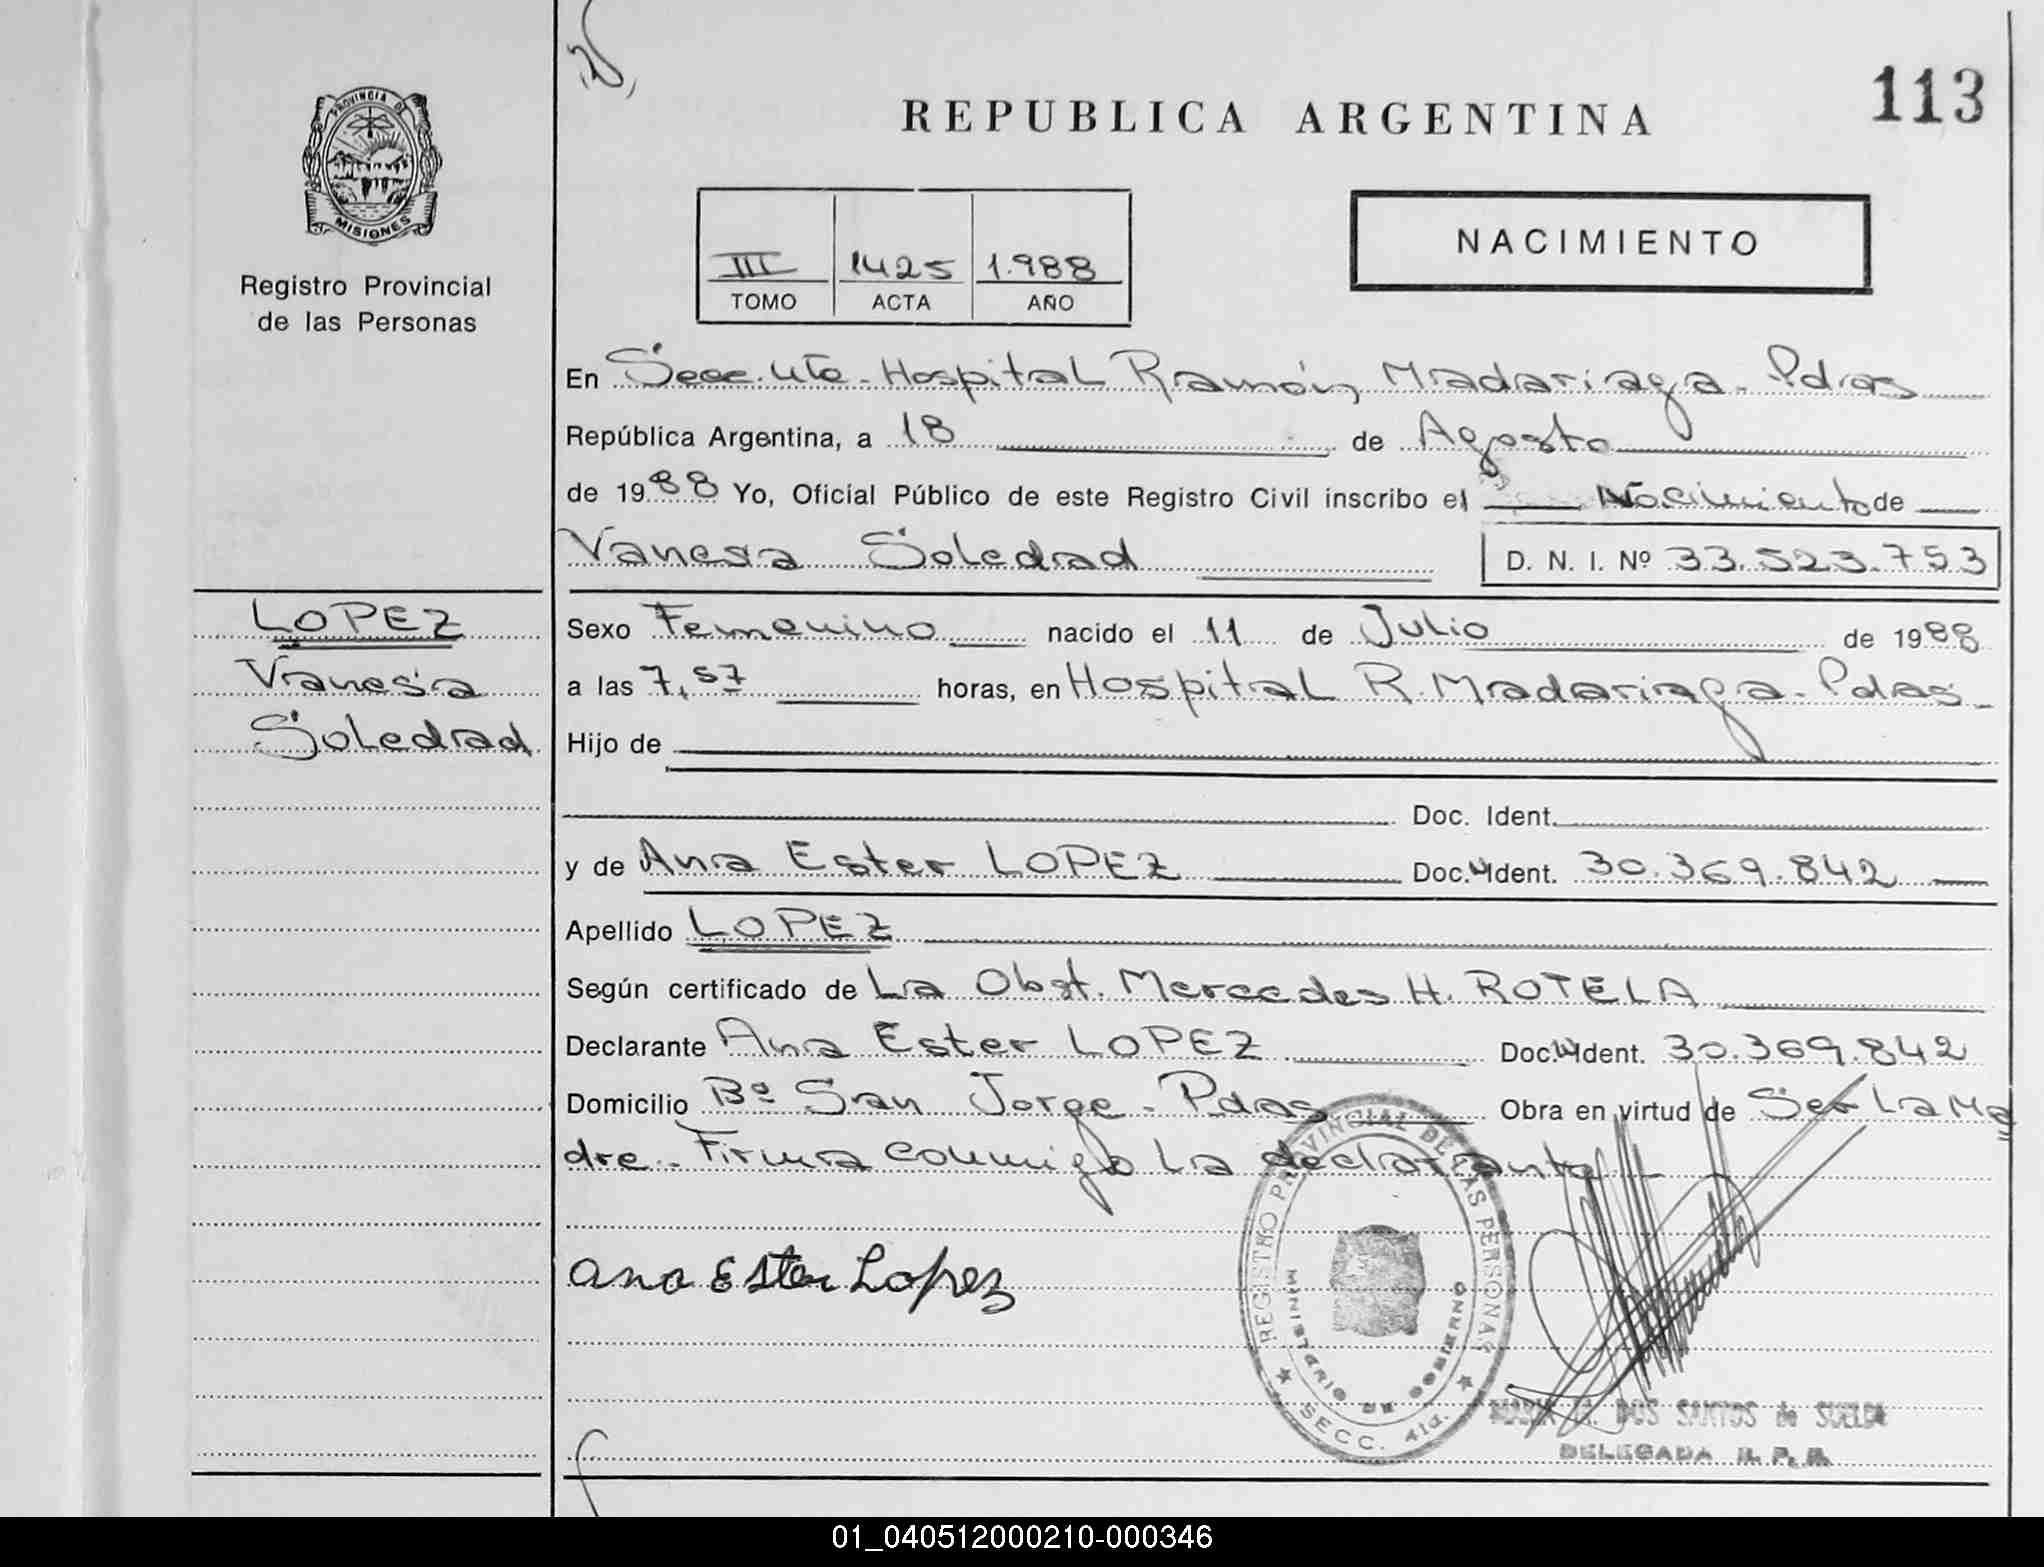 113
REPUBLICA ARGENTINA
PROVINCIA DE
MISIONES
Registro Provincial
de las Personas
NACIMIENTO
III 1425 1.988
TOMO ACTA AÑO
En Secc. 4ta - Hospital Ramón Madariaga - Pdas
República Argentina, a 18 de Agosto
de 1988 Yo, Oficial Público de este Registro Civil inscribo el Nacimiento de
Vanesa Soledad D. N. I. Nº 33.523.753
LOPEZ
Vanesa
Soledad
Sexo Femenino nacido el 11 de Julio de 1988
a las 7,57 horas, en Hospital R. Madariaga - Pdas
Hijo de
Doc. Ident.
y de Ana Ester LOPEZ Doc. Ident. 30.369.842
Apellido LOPEZ
Según certificado de La Obst. Mercedes H. ROTELA
Declarante Ana Ester LOPEZ Doc. Ident. 30.369.842
Domicilio Bº San Jorge - Pdas Obra en virtud de Ser La Ma
dre - Firma conmigo La declarante
Ana Ester Lopez
REGISTRO PROVINCIAL DE LAS PERSONAS
MINISTERIO DE GOBIERNO
SECC. 4ta.
DOS SANTOS de SUELDO
DELEGADA R. P. P.
01_040512000210-000346